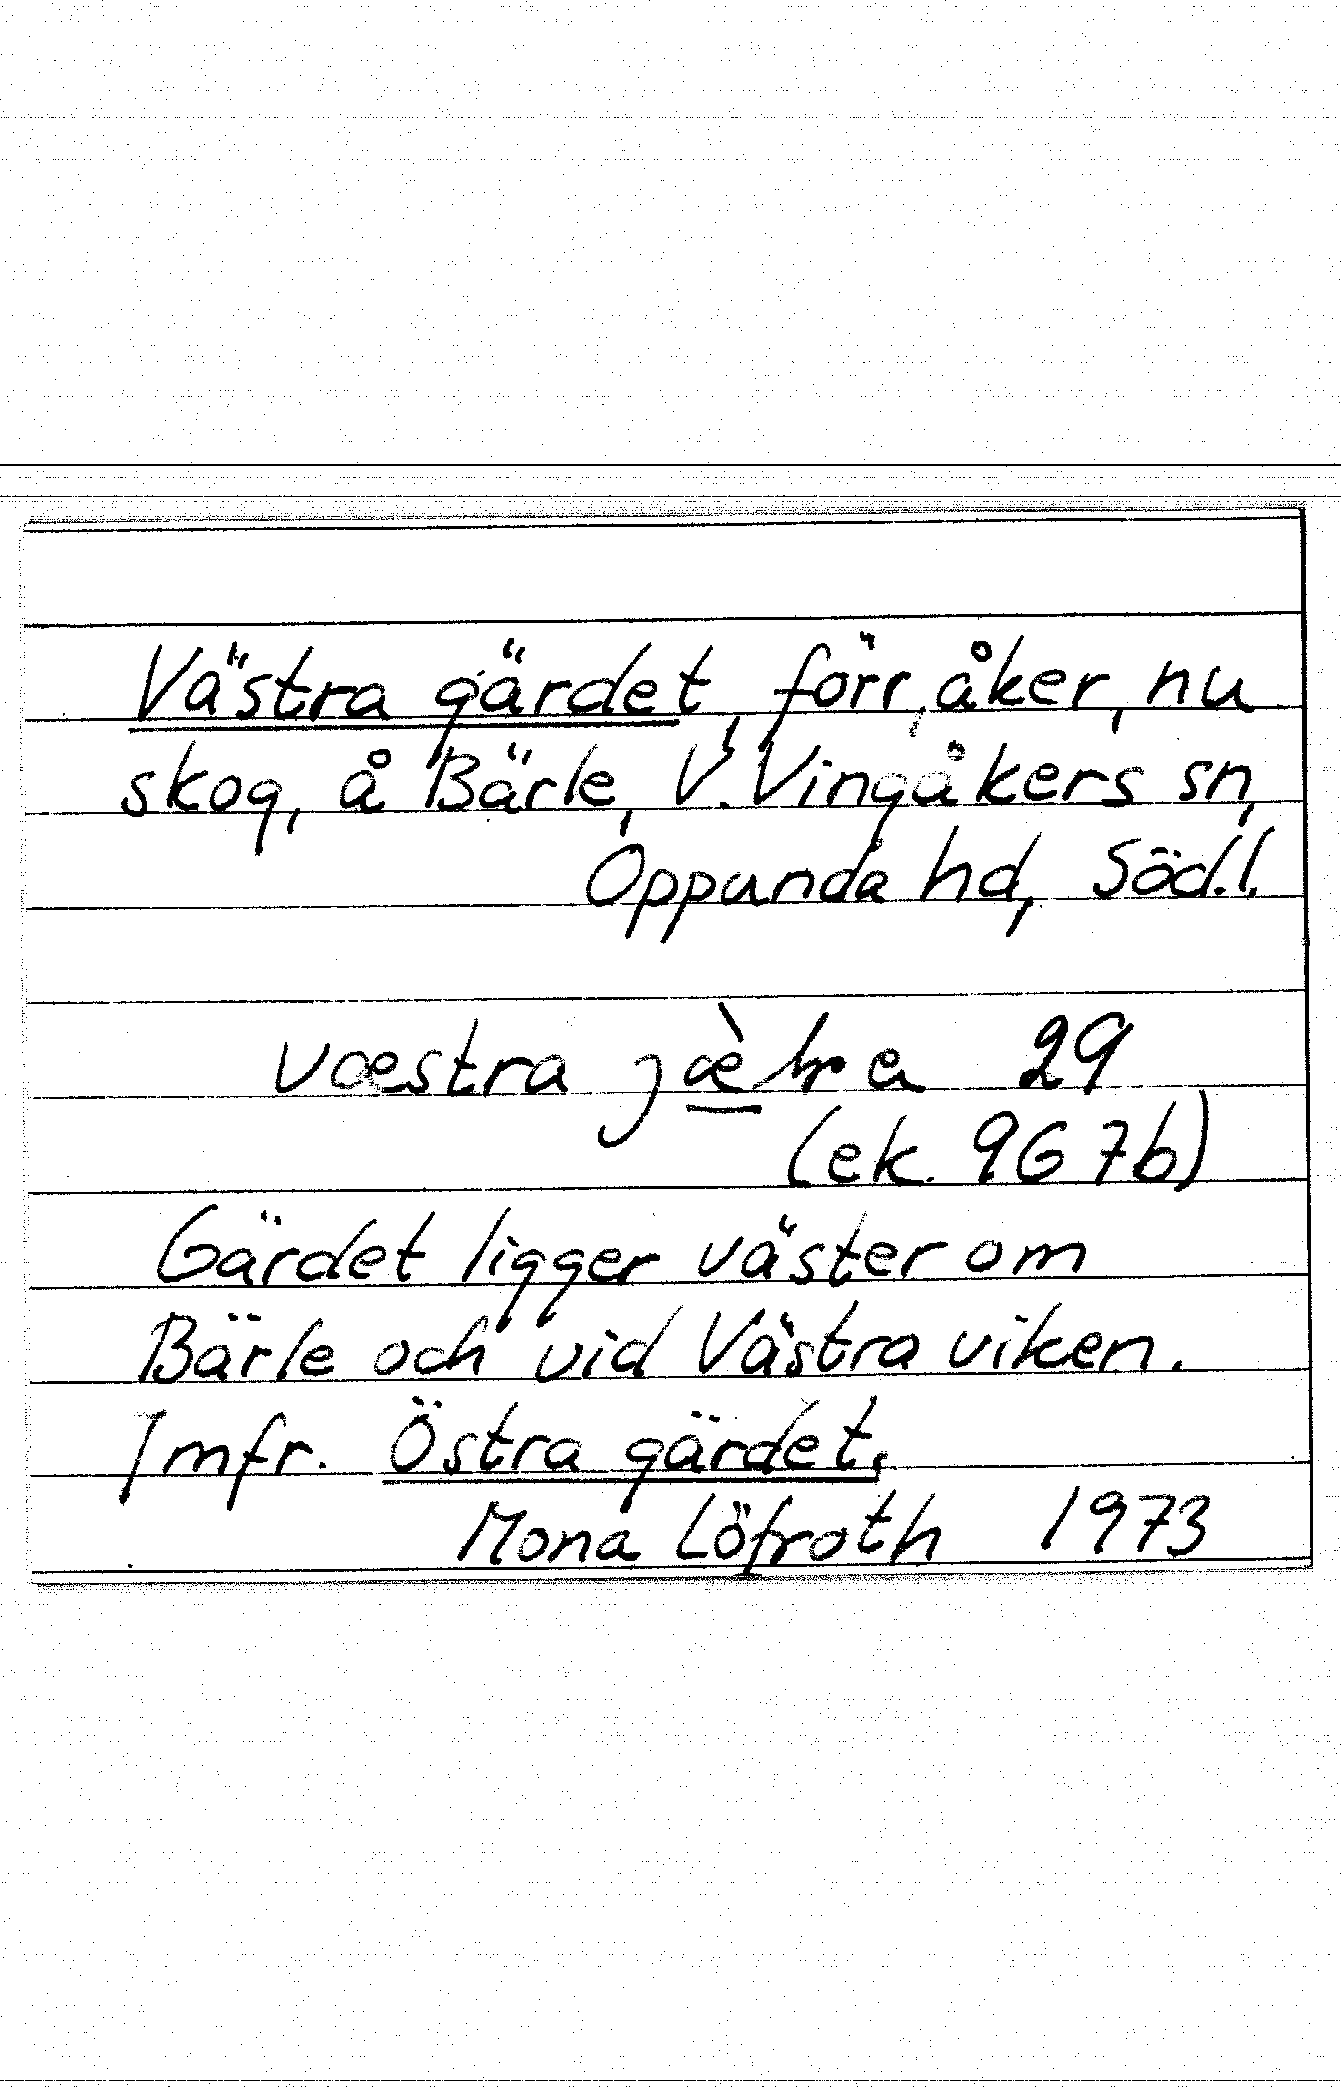 Västra gärdet, förr, åker, nu
skog, å Bärle, V. Vingåkers sn,
Oppunda hd, Söd.l.
væstra 29
(ek. 9G 7b)
Gärdet ligger väster om
Bärle och vid Västra viken.
Jmfr. Östra gärdet.
Mona Löfroth 1973